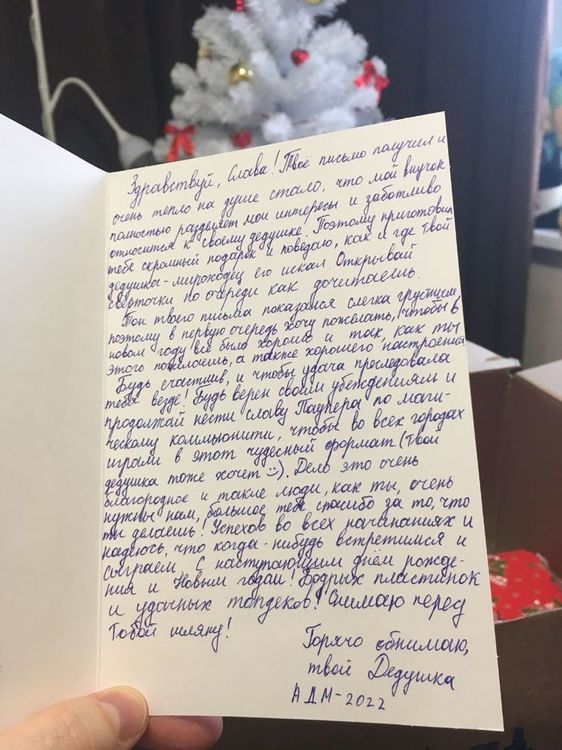 Здравствуй, Слава! Твоё письмо получил и
очень тепло на душе стало, что мой внучок
полностью разделяет мои интересы и заботливо
относится к своему дедушке. Поэтому приготовил
тебе скромный подарок и поведаю, как и где твой
дедушка-мироходец его искал. Открывай
сверточки по очереди как дочитаешь.
Тон твоего письма показался слегка грустным
поэтому в первую очередь хочу пожелать, чтобы в
новом году всё было хорошо и так, как ты
этого пожелаешь, а также хорошего настроения
Будь счастлив, и чтобы удача преследовала
тебя везде! Будь верен своим убеждениям и
продолжай нести славу Паупера по маги-
ческому коммьюнити, чтобы во всех городах
играли в этот чудесный формат (твой
дедушка тоже хочет :)). Дело это очень
благородное и такие люди, как ты, очень
нужны нам, большое тебе спасибо за то, что
ты делаешь! Успехов во всех начинаниях и
надеюсь, что когда-нибудь встретимся и
сыграем. С наступающим днём рожде-
ния и Новым годом! Бодрых пластинок
и удачных топдеков! Снимаю перед
Тобой шляпу!
Горячо обнимаю,
твой Дедушка
АДМ-2022